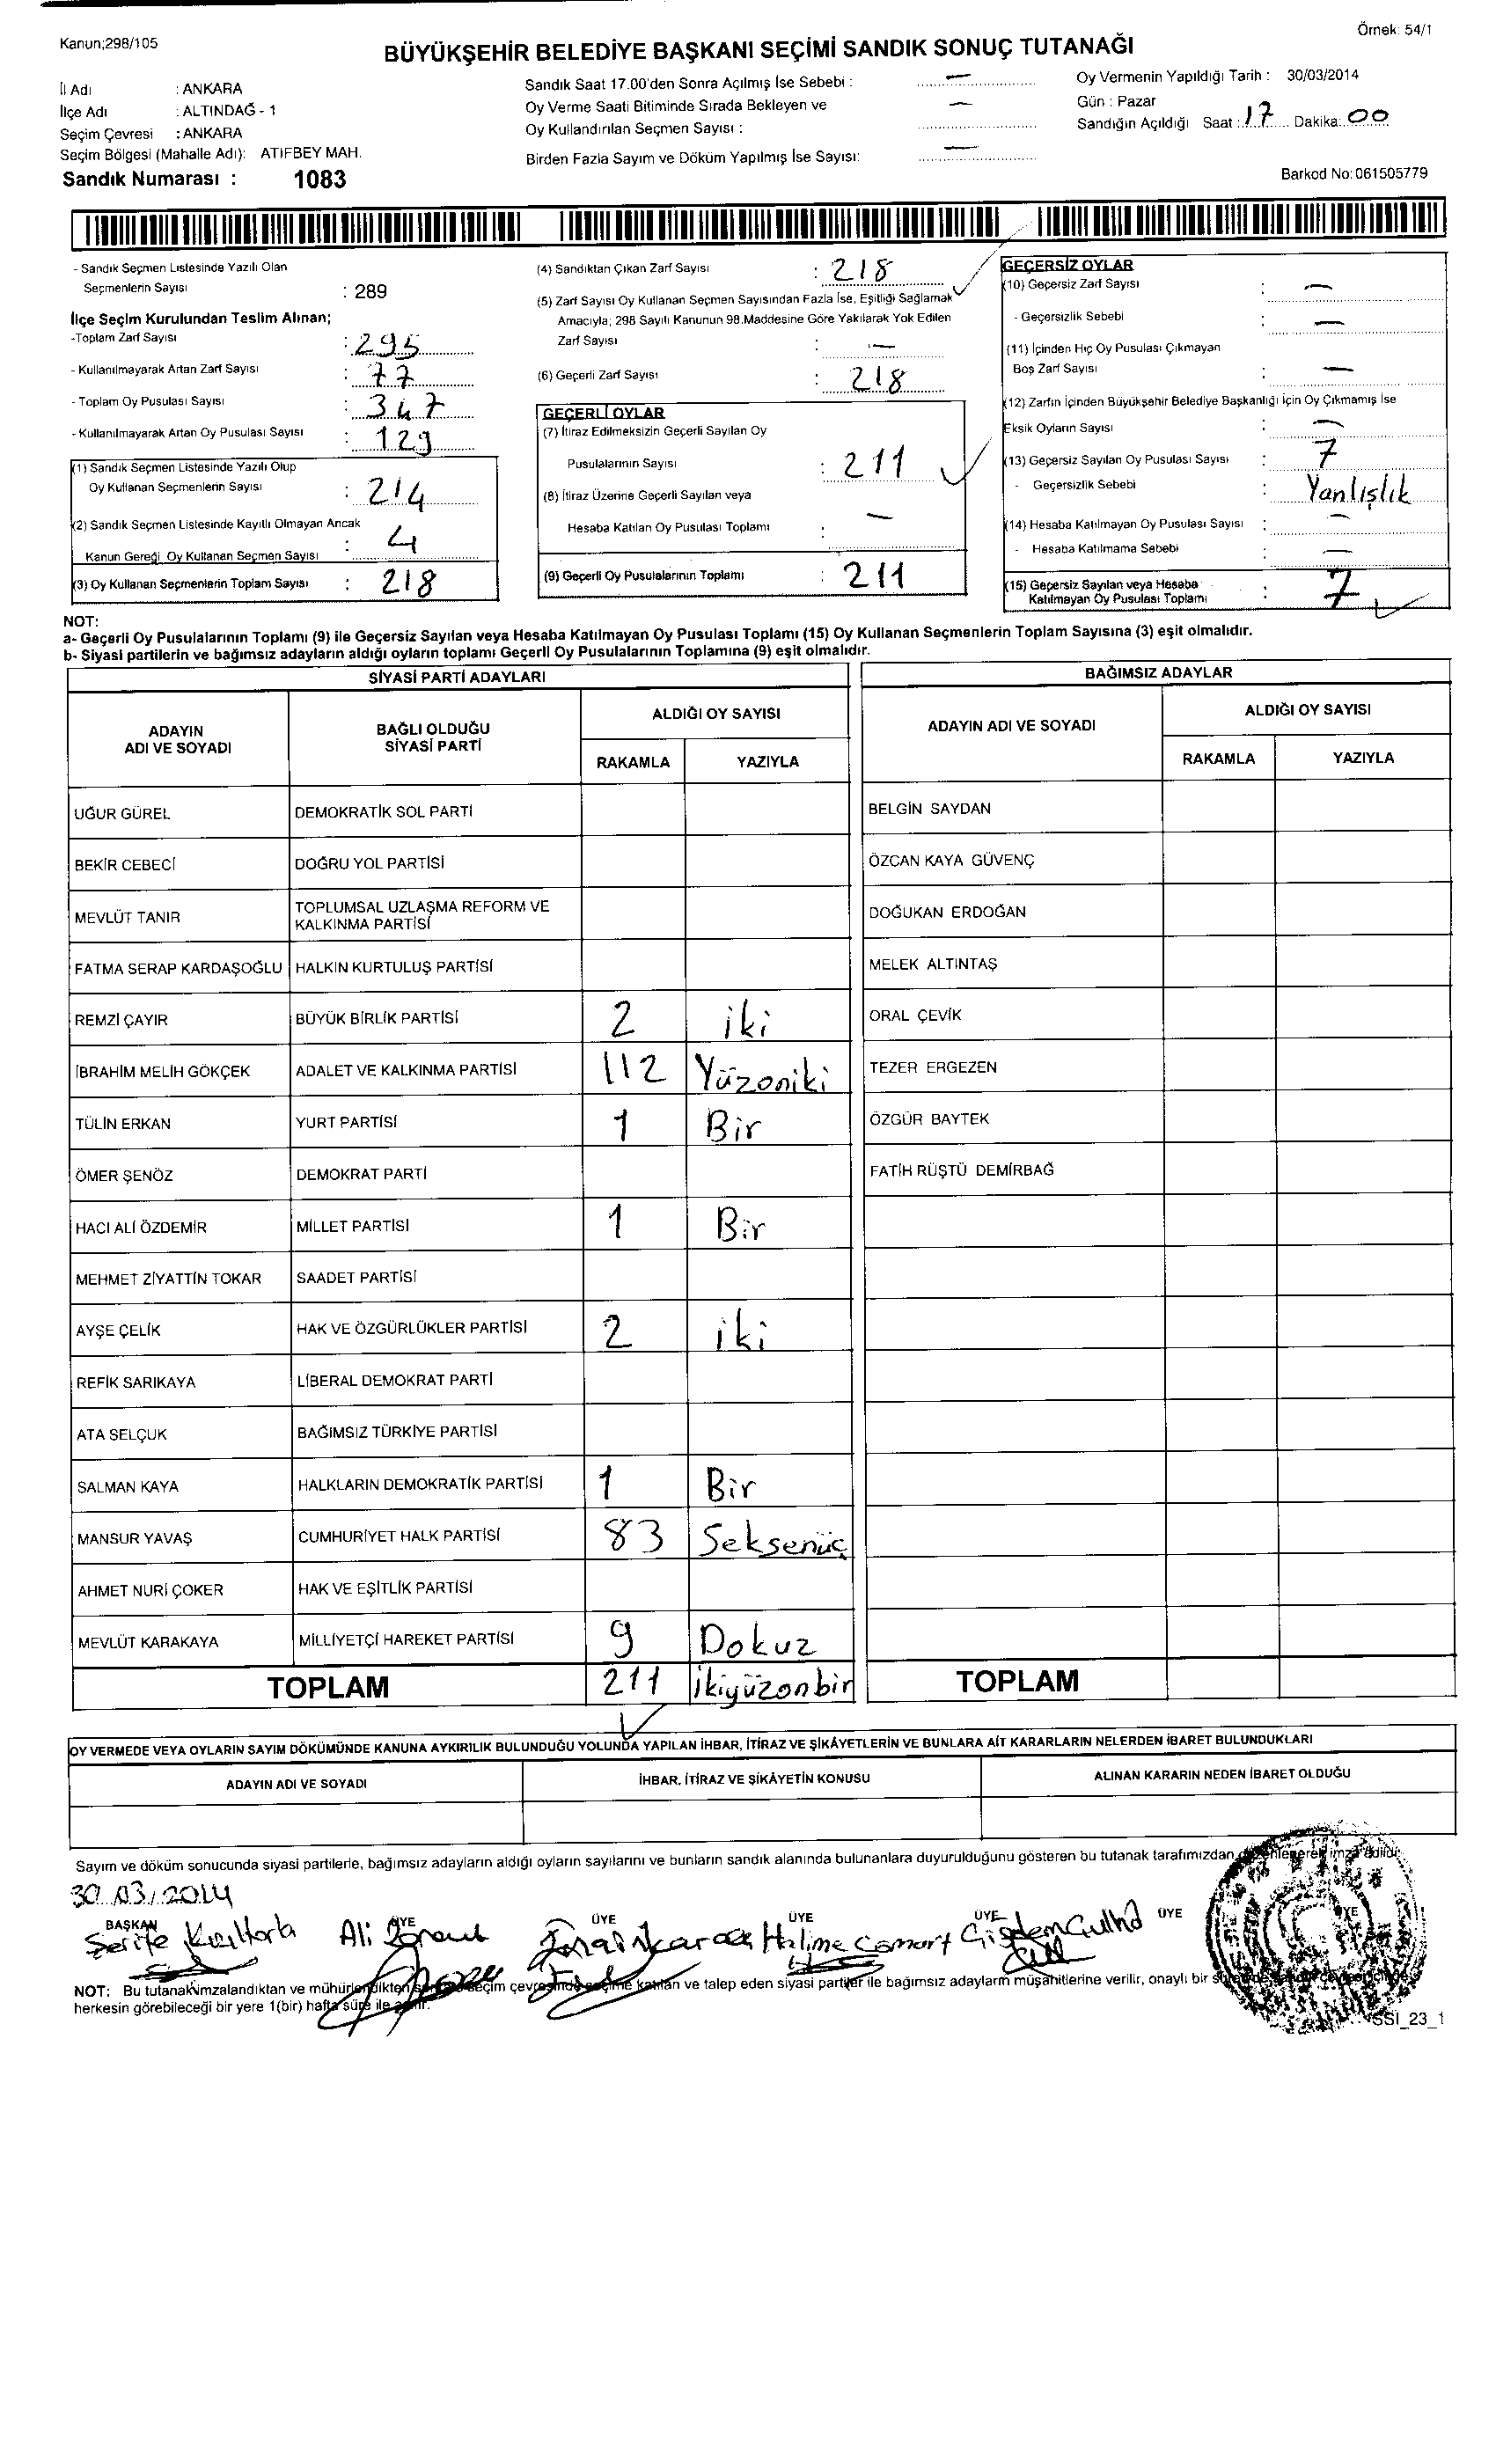 Kanun;298/105
Örnek: 54/1
BÜYÜKŞEHİR BELEDİYE BAŞKANI SEÇİMİ SANDIK SONUÇ TUTANAĞI
İl Adı : ANKARA
İlçe Adı : ALTINDAĞ - 1
Seçim Çevresi : ANKARA
Seçim Bölgesi (Mahalle Adı): ATIFBEY MAH.
Sandık Numarası : 1083
Sandık Saat 17.00'den Sonra Açılmış İse Sebebi : —
Oy Verme Saati Bitiminde Sırada Bekleyen ve
Oy Kullandırılan Seçmen Sayısı : —
Birden Fazla Sayım ve Döküm Yapılmış İse Sayısı: —
Oy Vermenin Yapıldığı Tarih : 30/03/2014
Gün : Pazar
Sandığın Açıldığı Saat : 17 Dakika: 00
Barkod No:061505779
- Sandık Seçmen Listesinde Yazılı Olan
Seçmenlerin Sayısı : 289
İlçe Seçim Kurulundan Teslim Alınan;
-Toplam Zarf Sayısı : 295
- Kullanılmayarak Artan Zarf Sayısı : 77
- Toplam Oy Pusulası Sayısı : 347
- Kullanılmayarak Artan Oy Pusulası Sayısı : 129
(1) Sandık Seçmen Listesinde Yazılı Olup
Oy Kullanan Seçmenlerin Sayısı : 214
(2) Sandık Seçmen Listesinde Kayıtlı Olmayan Ancak
Kanun Gereği Oy Kullanan Seçmen Sayısı : 4
(3) Oy Kullanan Seçmenlerin Toplam Sayısı : 218
(4) Sandıktan Çıkan Zarf Sayısı : 218
(5) Zarf Sayısı Oy Kullanan Seçmen Sayısından Fazla İse, Eşitliği Sağlamak
Amacıyla; 298 Sayılı Kanunun 98.Maddesine Göre Yakılarak Yok Edilen
Zarf Sayısı : —
(6) Geçerli Zarf Sayısı : 218
GEÇERLİ OYLAR
(7) İtiraz Edilmeksizin Geçerli Sayılan Oy
Pusulalarının Sayısı : 211
(8) İtiraz Üzerine Geçerli Sayılan veya
Hesaba Katılan Oy Pusulası Toplamı : —
(9) Geçerli Oy Pusulalarının Toplamı : 211
GEÇERSİZ OYLAR
(10) Geçersiz Zarf Sayısı : —
- Geçersizlik Sebebi : —
(11) İçinden Hiç Oy Pusulası Çıkmayan
Boş Zarf Sayısı : —
(12) Zarfın İçinden Büyükşehir Belediye Başkanlığı İçin Oy Çıkmamış İse
Eksik Oyların Sayısı : —
(13) Geçersiz Sayılan Oy Pusulası Sayısı : 7
- Geçersizlik Sebebi : Yanlışlık
(14) Hesaba Katılmayan Oy Pusulası Sayısı : —
- Hesaba Katılmama Sebebi : —
(15) Geçersiz Sayılan veya Hesaba
Katılmayan Oy Pusulası Toplamı : 7
NOT:
a- Geçerli Oy Pusulalarının Toplamı (9) ile Geçersiz Sayılan veya Hesaba Katılmayan Oy Pusulası Toplamı (15) Oy Kullanan Seçmenlerin Toplam Sayısına (3) eşit olmalıdır.
b- Siyasi partilerin ve bağımsız adayların aldığı oyların toplamı Geçerli Oy Pusulalarının Toplamına (9) eşit olmalıdır.
SİYASİ PARTİ ADAYLARI
ADAYIN
ADI VE SOYADI
BAĞLI OLDUĞU
SİYASİ PARTİ
ALDIĞI OY SAYISI
RAKAMLA YAZIYLA
UĞUR GÜREL DEMOKRATİK SOL PARTİ
BEKİR CEBECİ DOĞRU YOL PARTİSİ
MEVLÜT TANIR TOPLUMSAL UZLAŞMA REFORM VE
KALKINMA PARTİSİ
FATMA SERAP KARDAŞOĞLU HALKIN KURTULUŞ PARTİSİ
REMZİ ÇAYIR BÜYÜK BİRLİK PARTİSİ 2 iki
İBRAHİM MELİH GÖKÇEK ADALET VE KALKINMA PARTİSİ 112 Yüzoniki
TÜLİN ERKAN YURT PARTİSİ 1 Bir
ÖMER ŞENÖZ DEMOKRAT PARTİ
HACI ALİ ÖZDEMİR MİLLET PARTİSİ 1 Bir
MEHMET ZİYATTİN TOKAR SAADET PARTİSİ
AYŞE ÇELİK HAK VE ÖZGÜRLÜKLER PARTİSİ 2 iki
REFİK SARIKAYA LİBERAL DEMOKRAT PARTİ
ATA SELÇUK BAĞIMSIZ TÜRKİYE PARTİSİ
SALMAN KAYA HALKLARIN DEMOKRATİK PARTİSİ 1 Bir
MANSUR YAVAŞ CUMHURİYET HALK PARTİSİ 83 Seksenüç
AHMET NURİ ÇOKER HAK VE EŞİTLİK PARTİSİ
MEVLÜT KARAKAYA MİLLİYETÇİ HAREKET PARTİSİ 9 Dokuz
TOPLAM 211 İkiyüzonbir
BAĞIMSIZ ADAYLAR
ADAYIN ADI VE SOYADI
ALDIĞI OY SAYISI
RAKAMLA YAZIYLA
BELGİN SAYDAN
ÖZCAN KAYA GÜVENÇ
DOĞUKAN ERDOĞAN
MELEK ALTINTAŞ
ORAL ÇEVİK
TEZER ERGEZEN
ÖZGÜR BAYTEK
FATİH RÜŞTÜ DEMİRBAĞ
TOPLAM
OY VERMEDE VEYA OYLARIN SAYIM DÖKÜMÜNDE KANUNA AYKIRILIK BULUNDUĞU YOLUNDA YAPILAN İHBAR, İTİRAZ VE ŞİKÂYETLERİN VE BUNLARA AİT KARARLARIN NELERDEN İBARET BULUNDUKLARI
ADAYIN ADI VE SOYADI İHBAR, İTİRAZ VE ŞİKÂYETİN KONUSU ALINAN KARARIN NEDEN İBARET OLDUĞU
Sayım ve döküm sonucunda siyasi partilerle, bağımsız adayların aldığı oyların sayılarını ve bunların sandık alanında bulunanlara duyurulduğunu gösteren bu tutanak tarafımızdan düzenlenerek imza edildi.
30.03.2014
BAŞKAN ÜYE ÜYE ÜYE ÜYE ÜYE ÜYE
Şerife Ali Halime Comart
NOT: Bu tutanak imzalandıktan ve mühürlendikten seçim çevresinde seçime katılan ve talep eden siyasi partiler ile bağımsız adayların müşahitlerine verilir, onaylı bir
herkesin görebileceği bir yere 1(bir) hafta süre ile asılır.
SSİ_23_1